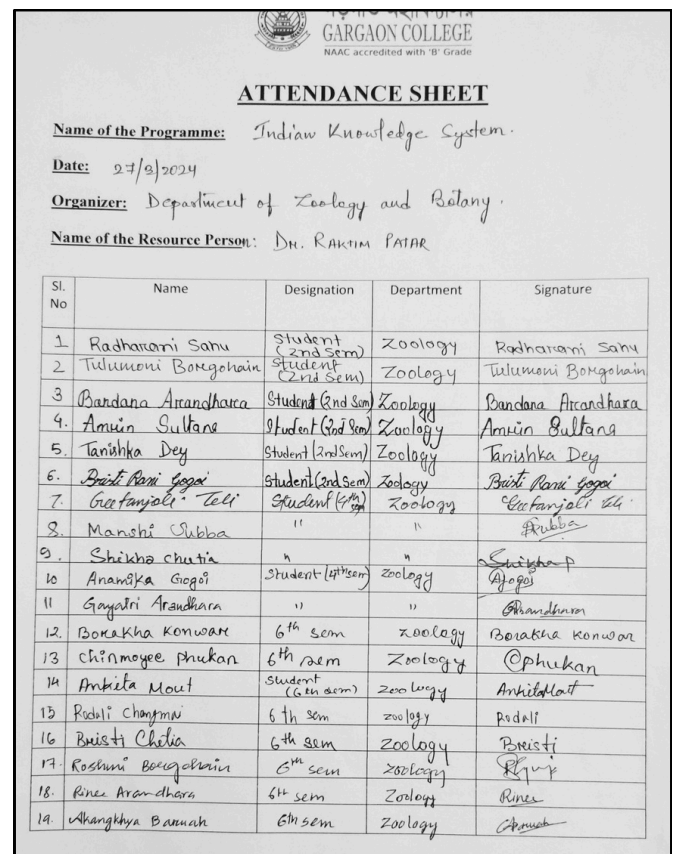 GARGAON COLLEGE
NAAC accredited with 'B' Grade
ATTENDANCE SHEET
Name of the Programme: Indian Knowledge System.
Date: 27/3/2024
Organizer: Department of Zoology and Botany.
Name of the Resource Person: DR. RAKTIM PATAR
Sl. No Name Designation Department Signature
1 Radharani Sahu Student (2nd Sem) Zoology Radharani Sahu
2 Tulumoni Borgohain Student (2nd Sem) Zoology Tulumoni Borgohain
3 Bandana Arandhara Student (2nd Sem) Zoology Bandana Arandhara
4. Amrin Sultana Student (2nd Sem) Zoology Amrin Sultana
5. Tanishka Dey Student (2nd Sem) Zoology Tanishka Dey
6. Bristi Rani Gogoi Student (2nd Sem) Zoology Bristi Rani Gogoi
7. Geetanjoli Teli Student (4th sem) Zoology Geetanjoli Teli
8. Manshi Subba " " Subba
9. Shikha chutia " "
10 Anamika Gogoi Student (4th sem) Zoology AGogoi
11 Gayatri Arandhara " " GArandhara
12. Borakha Konwar 6th sem zoology Borakha Konwar
13 Chinmoyee phukan 6th sem Zoology Cphukan
14 Ankita Mout Student (6th sem) zoology AnkitaMout
15 Rodali Changmai 6th sem zoology Rodali
16 Bristi Chetia 6th sem Zoology Bristi
17. Roshmi Borgohain 6th sem zoology
18. Rinee Arandhara 6th sem Zoology Rinee
19. Akangkhya Baruah 6th sem Zoology ABaruah